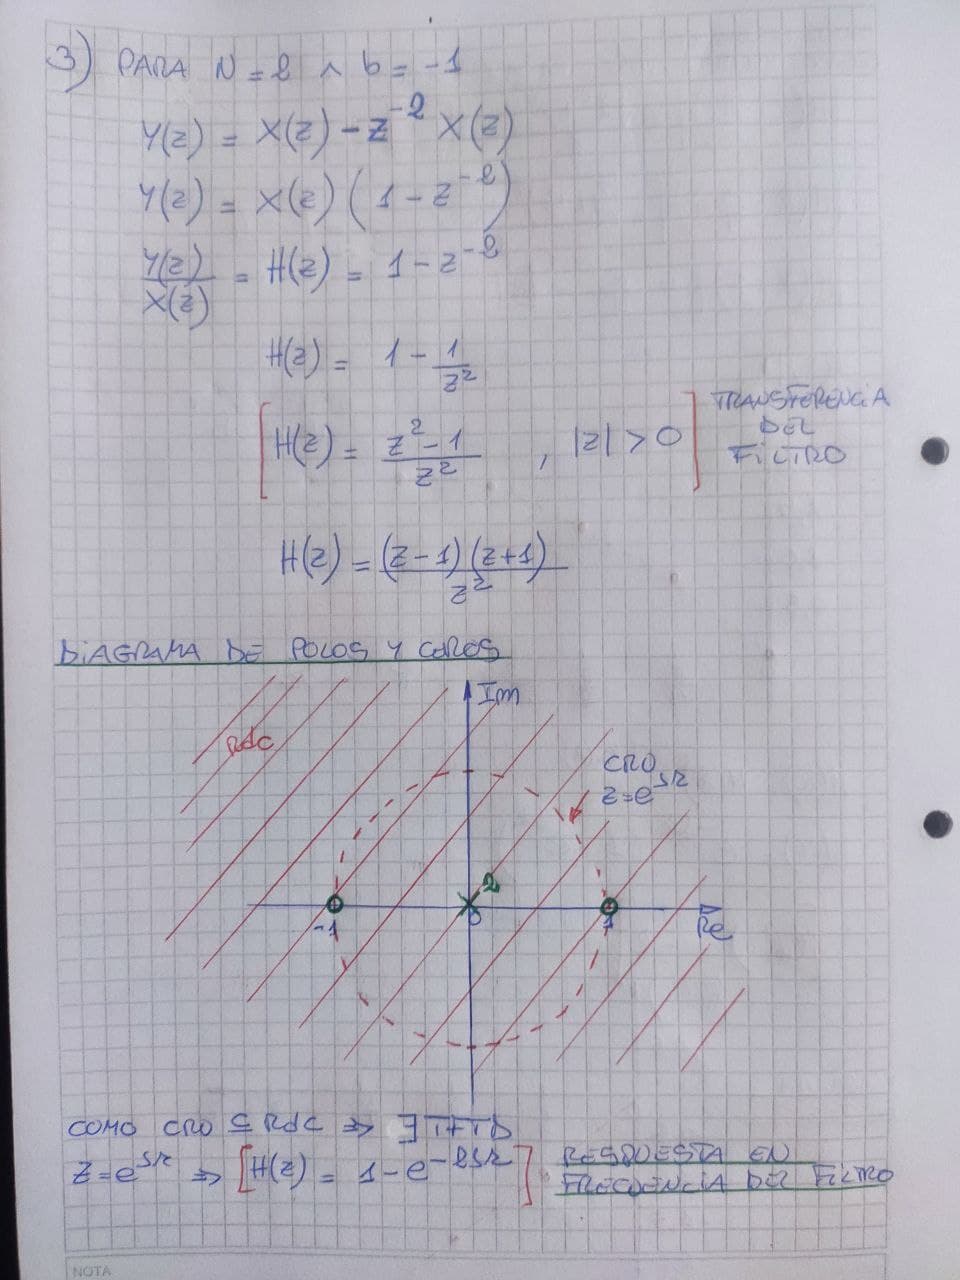 3) PARA N = 2 ∧ b = -1
Y(z) = X(z) - z^-2 X(z)
Y(z) = X(z) (1 - z^-2)
Y(z)/X(z) = H(z) = 1 - z^-2
H(z) = 1 - 1/z^2
[H(z) = (z^2 - 1)/z^2 , |z| > 0]
TRANSFERENCIA
DEL
FILTRO
H(z) = (z - 1)(z + 1)/z^2
DIAGRAMA DE POLOS Y CEROS
Im
RdC
CRO
z = e^jΩ
2
-1
0
1
Re
COMO CRO ⊆ RdC ⇒ ∃ TFTD
z = e^jΩ ⇒ [H(z) = 1 - e^-2jΩ]
RESPUESTA EN
FRECUENCIA DEL FILTRO
NOTA